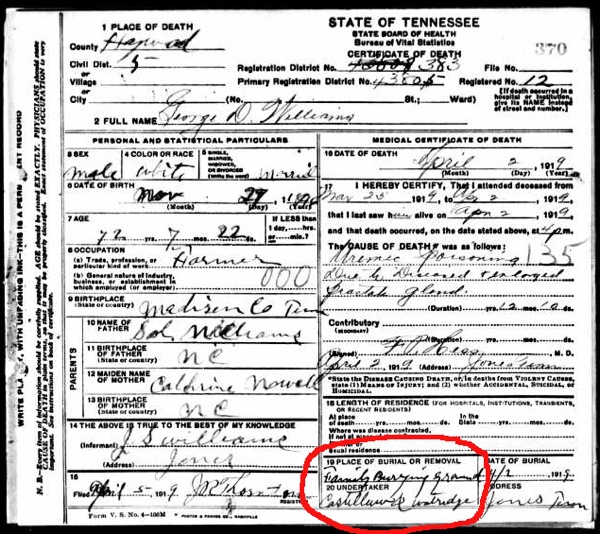 STATE OF TENNESSEE
STATE BOARD OF HEALTH
Bureau of Vital Statistics
CERTIFICATE OF DEATH
370
1 PLACE OF DEATH
County Haywood
Civil Dist. 5
or
Village
or
City (No. St.; Ward)
Registration District No. 383 File No.
Primary Registration District No. 43805 Registered No. 12
(If death occurred in a hospital or institution, give its NAME instead of street and number.)
2 FULL NAME George D. Williams
PERSONAL AND STATISTICAL PARTICULARS
3 SEX
male
4 COLOR OR RACE
white
5 SINGLE, MARRIED, WIDOWED, OR DIVORCED
(Write the word)
6 DATE OF BIRTH
Nov 29
(Month) (Day)
7 AGE
72 yrs. 7 mos. 22 ds.
If LESS than
1 day,......hrs.
or......min.?
8 OCCUPATION
(a) Trade, profession, or particular kind of work Farmer
(b) General nature of industry, business, or establishment in which employed (or employer)
000
9 BIRTHPLACE
(State or country) Madison Co Tenn
PARENTS
10 NAME OF FATHER Sol Williams
11 BIRTHPLACE OF FATHER
(State or country) NC
12 MAIDEN NAME OF MOTHER Catherine Nowell
13 BIRTHPLACE OF MOTHER
(State or country) NC
14 THE ABOVE IS TRUE TO THE BEST OF MY KNOWLEDGE
(Informant) J S Williams
(Address) Jones
15
Filed April 5 1919
REGISTRAR
Form V. S. No. 4-100M
MEDICAL CERTIFICATE OF DEATH
16 DATE OF DEATH
April 2, 1919
(Month) (Day) (Year)
17 I HEREBY CERTIFY, That I attended deceased from
Mar 25 1919, to Apr 2 1919
that I last saw him alive on Apr 2 1919
and that death occurred, on the date stated above, at 4 p m.
The CAUSE OF DEATH* was as follows:
Uremic Poisoning 135
Due to Diseased & enlarged
prostate gland.
(Duration) yrs. mos. ds.
Contributory
(Secondary)
(Duration) yrs. mos. ds.
(Signed) Hess M. D.
April 2 1919 (Address) Jones Tenn
*State the DISEASE CAUSING DEATH, or, in deaths from VIOLENT CAUSES, state (1) MEANS OF INJURY; and (2) whether ACCIDENTAL, SUICIDAL, or HOMICIDAL.
18 LENGTH OF RESIDENCE (FOR HOSPITALS, INSTITUTIONS, TRANSIENTS, OR RECENT RESIDENTS)
At place of death yrs. mos. ds. In the State yrs. mos. ds.
Where was disease contracted,
If not at place
usual residence
19 PLACE OF BURIAL OR REMOVAL
Family Burying Ground
DATE OF BURIAL
4/2 1919
20 UNDERTAKER
ADDRESS
Jones Tenn
WITH UNFADING INK—THIS IS A PERMANENT RECORD
N. B.—Every item of information should be carefully supplied. AGE should be stated EXACTLY. PHYSICIANS should state CAUSE OF DEATH in plain terms